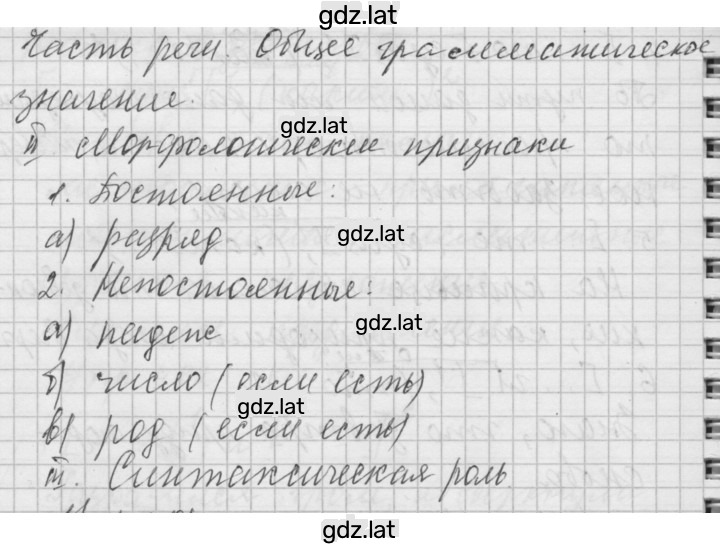 gdz.lat
Часть речи. Общее грамматическое
значение.
gdz.lat
II Морфологические признаки
1. Постоянные:
а) разряд.
gdz.lat
2. Непостоянные:
а) падеж
gdz.lat
б) число (если есть)
gdz.lat
в) род (если есть)
III. Синтаксическая роль
gdz.lat